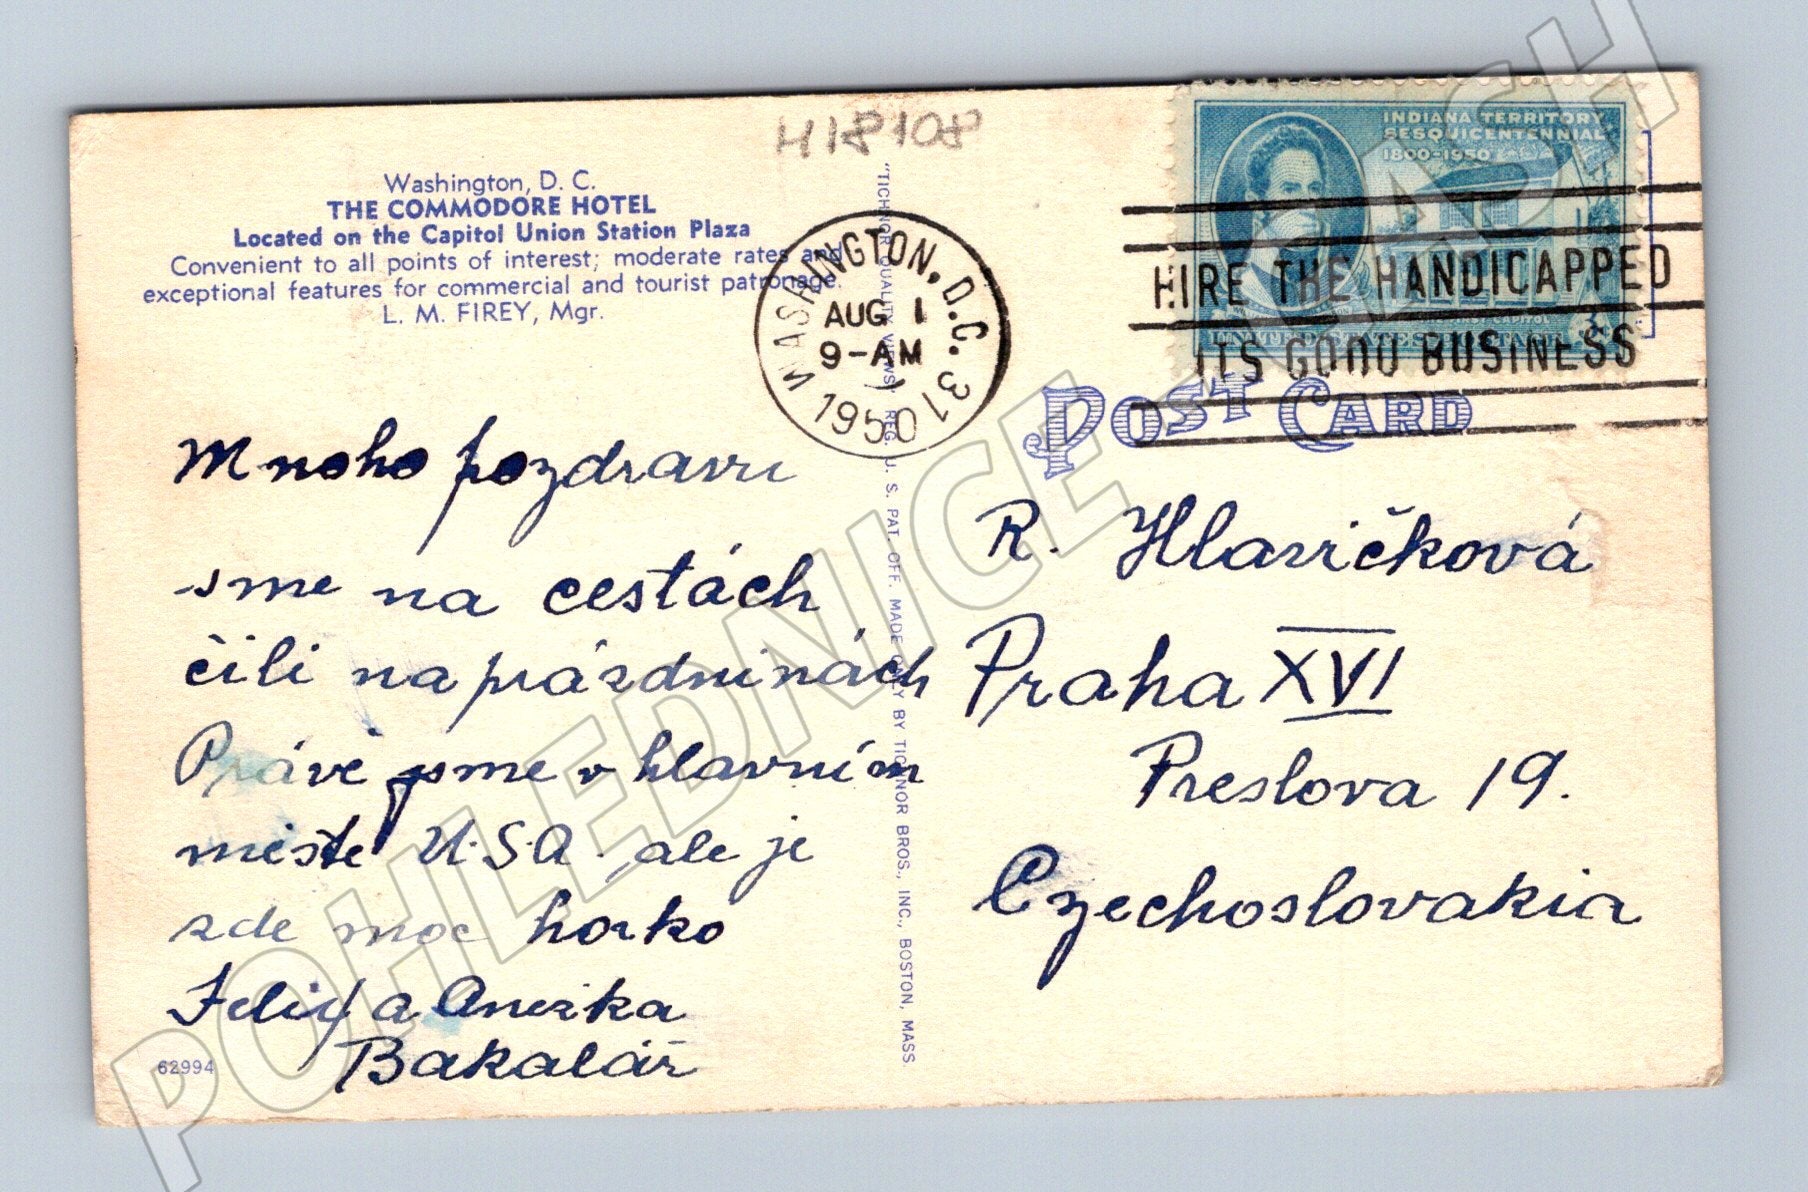 H18108
Washington, D. C.
THE COMMODORE HOTEL
Located on the Capitol Union Station Plaza
Convenient to all points of interest; moderate rates and
exceptional features for commercial and tourist patronage.
L. M. FIREY, Mgr.
WASHINGTON, D.C. 31
AUG 1
9-AM
1950
INDIANA TERRITORY
SESQUICENTENNIAL
1800-1950
HIRE THE HANDICAPPED
ITS GOOD BUSINESS
POST CARD
Mnoho pozdravu
sme na cestách
čili na prázdninách
Právě jsme v hlavním
misťe U.S.A. ale je
zde moc horko
Felix a Anežka
Bakalář
62994
"TICHNOR QUALITY VIEWS" REG. U. S. PAT. OFF. MADE ONLY BY TICHNOR BROS., INC., BOSTON, MASS.
R. Hlavičková
Praha XVI
Preslova 19.
Czechoslovakia
POHLEDNICE - CASH